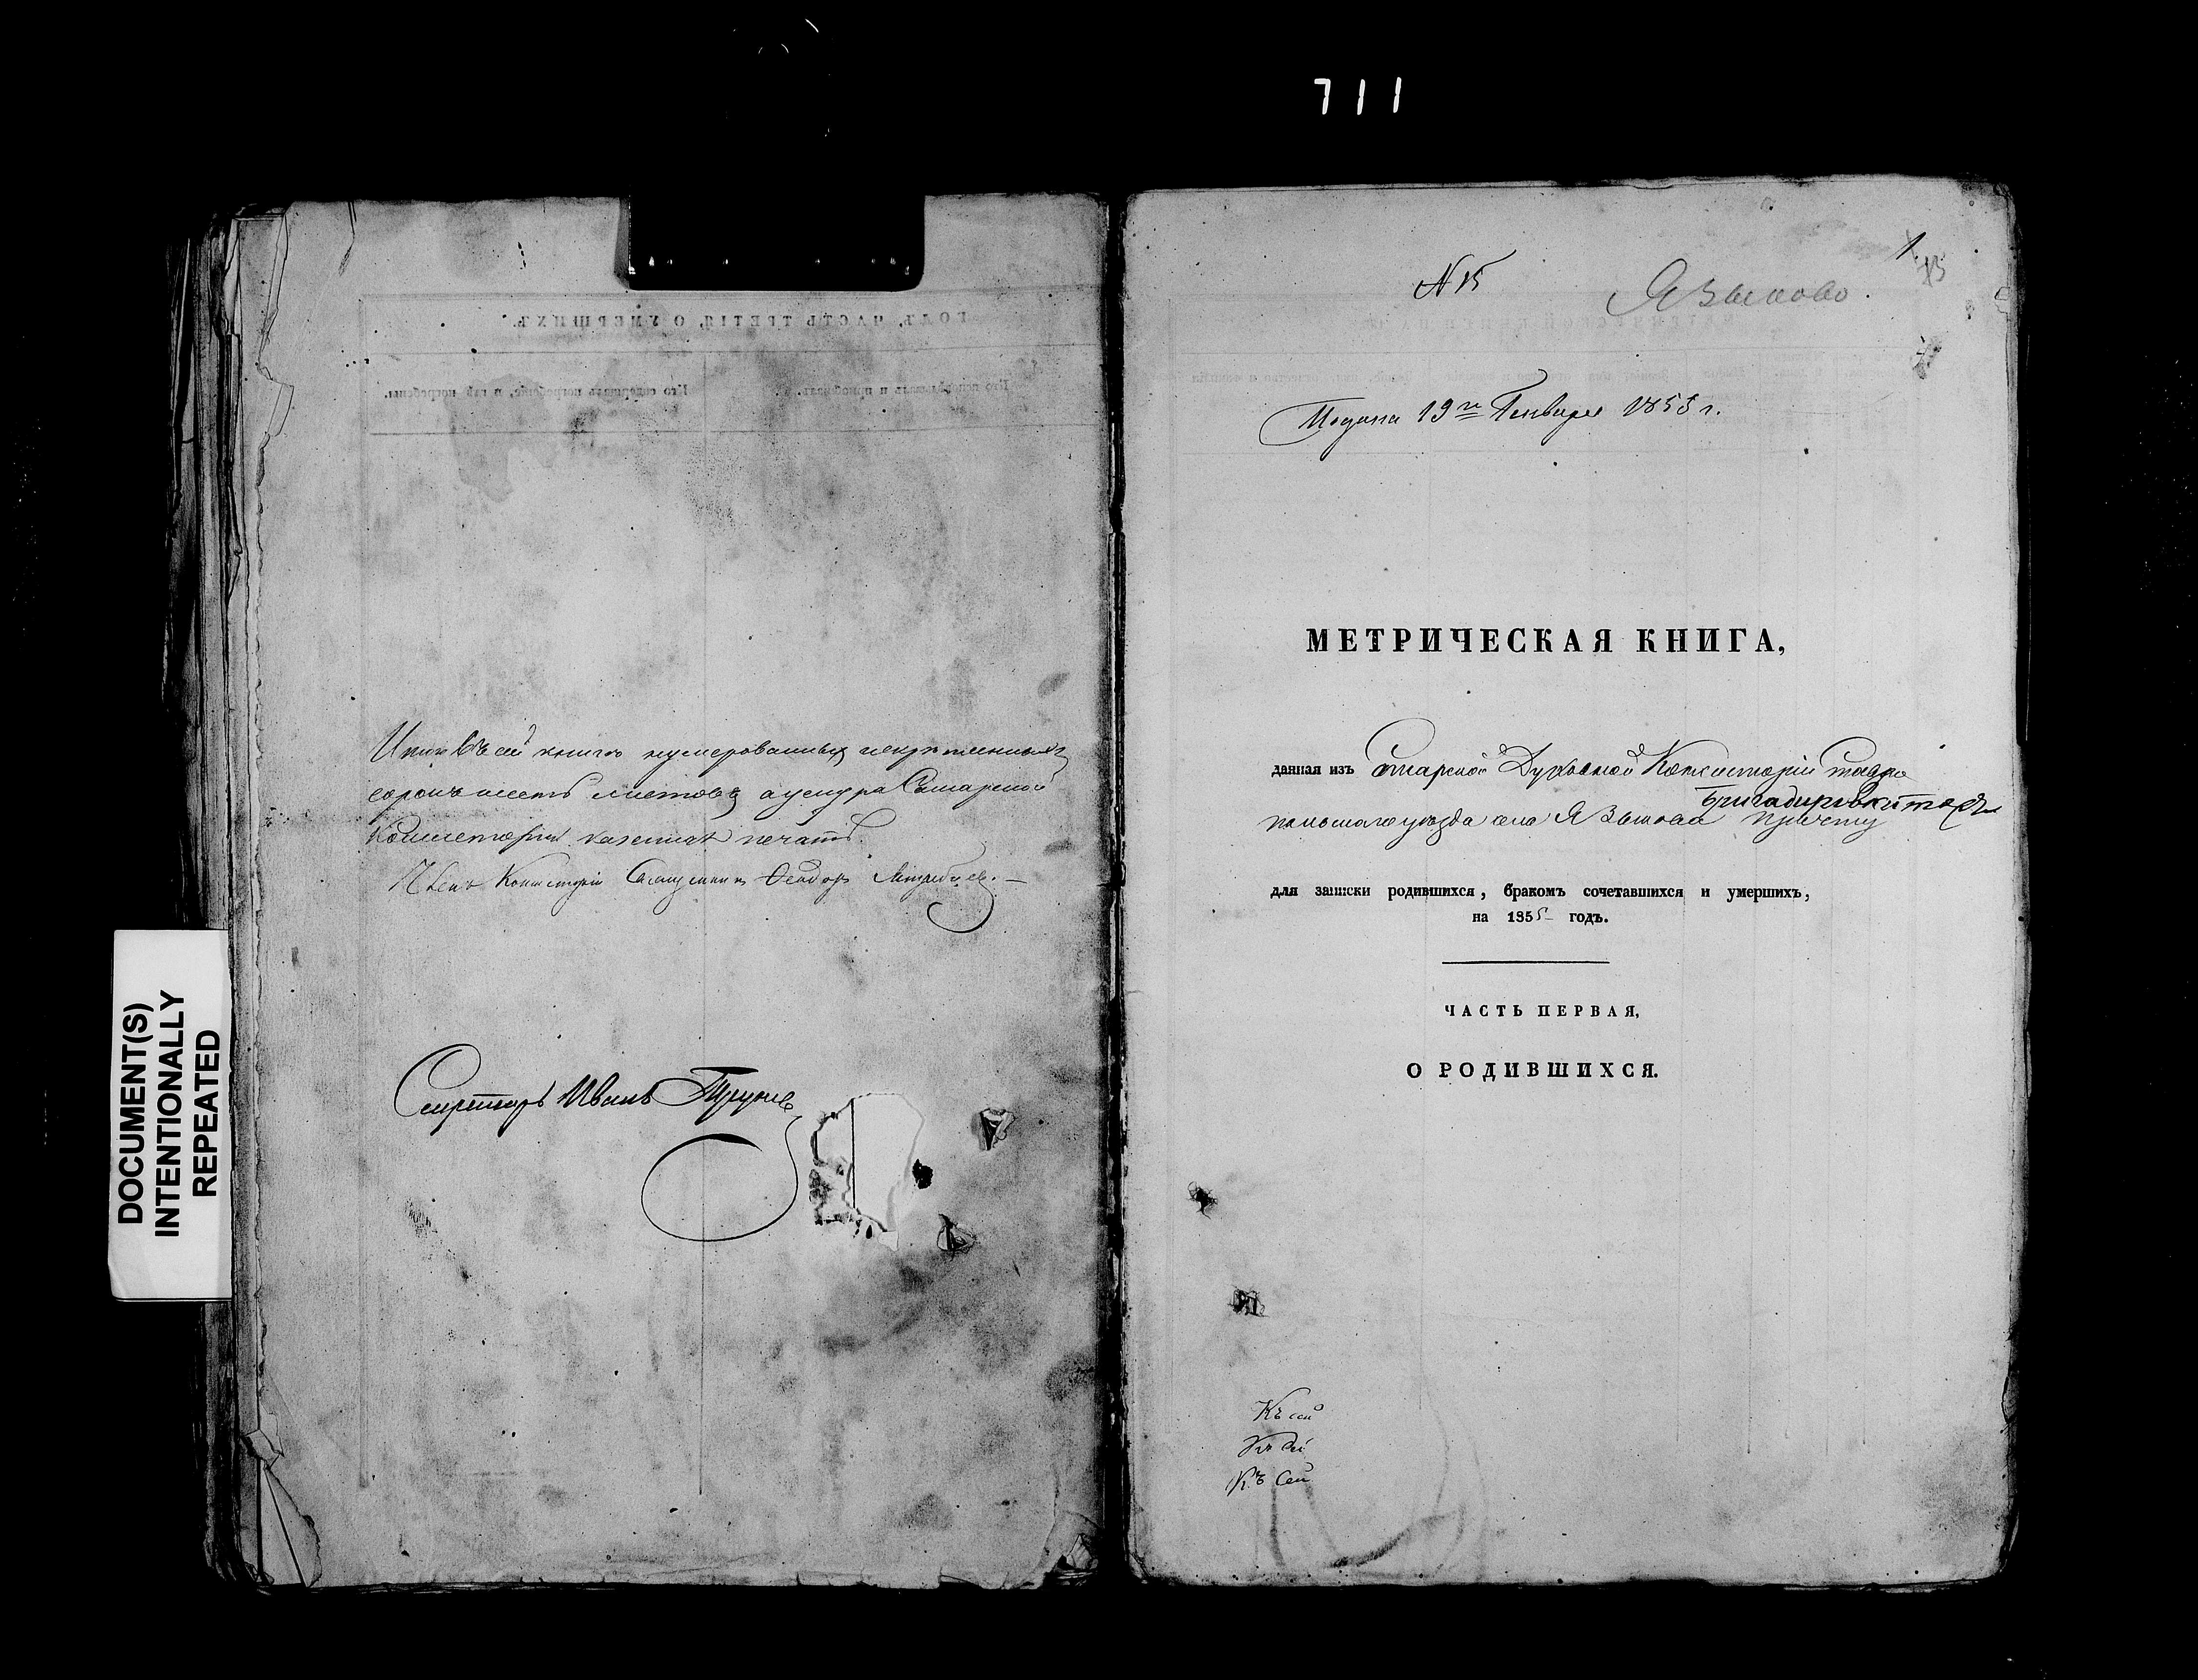 711
ГОДЪ, ЧАСТЬ ТРЕТІЯ, О УМЕРШИХЪ.
Кто исповѣдывалъ и пріобщалъ. Кто совершалъ погребеніе, и гдѣ погребены.
Итого въ сей книгѣ нумерованныхъ и скрѣпленныхъ
сорокъ шесть листовъ, а у шнура Самарской
Консисторіи казенная печать.
Членъ Консисторіи Священникъ Ѳеодоръ
Секретарь Иванъ
DOCUMENT(S)
INTENTIONALLY
REPEATED
1
N 15 Языково.
Подана 19го Генваря 1853 г.
МЕТРИЧЕСКАЯ КНИГА,
данная изъ Самарской Духовной Консисторіи Ставро
польскаго уѣзда села Языкова причту
для записки родившихся, бракомъ сочетавшихся и умершихъ,
на 1855 годъ.
ЧАСТЬ ПЕРВАЯ,
О РОДИВШИХСЯ.
Къ сей
Къ сей
Къ Сей